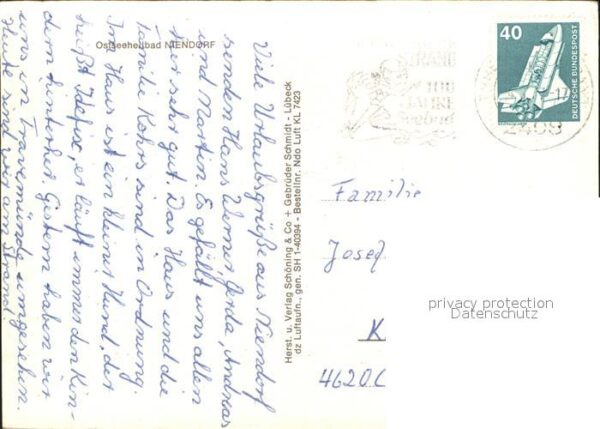 Ostseeheilbad NIENDORF
Viele Urlaubsgrüße aus Niendorf
senden Hans Werner, Gerda, Andreas
und Martin. Es gefällt uns allen
hier sehr gut. Das Haus und die
Familie Kohrs sind in Ordnung.
Im Haus ist ein kleiner Hund, der
heißt Idefix, er läuft immer den Kin-
dern hinterher. Gestern haben wir
uns in Travemünde umgesehen.
Heute sind wir am Strand.
Herst. u. Verlag Schöning & Co + Gebrüder Schmidt - Lübeck
dz Luftaufn., gen. SH 1-40394 - Bestellnr. Ndo Luft KL 7423
STRAND
100
JAHRE
40
DEUTSCHE BUNDESPOST
2409
Familie
Josef
K
4620 C
privacy protection
Datenschutz